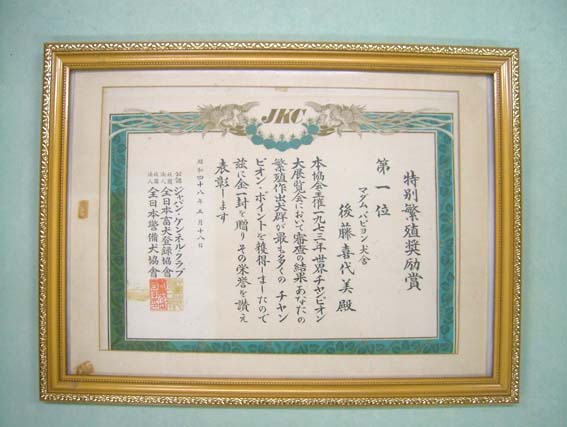 JKC
特別繁殖奨励賞
第一位
マダム、パピヨン犬舎
後藤喜代美殿
本協会主催一九七三年世界チャンピオン
大展覧会において審査の結果あなたの
繁殖作出犬群が最も多くのチャン
ピオン・ポイントを獲得しましたので
茲に金一封を贈りその栄誉を讃え
表彰します
昭和四十八年五月十八日
公認 ジャパン・ケンネル・クラブ
社団法人 全日本畜犬登録協會
社団法人 全日本警備犬協會